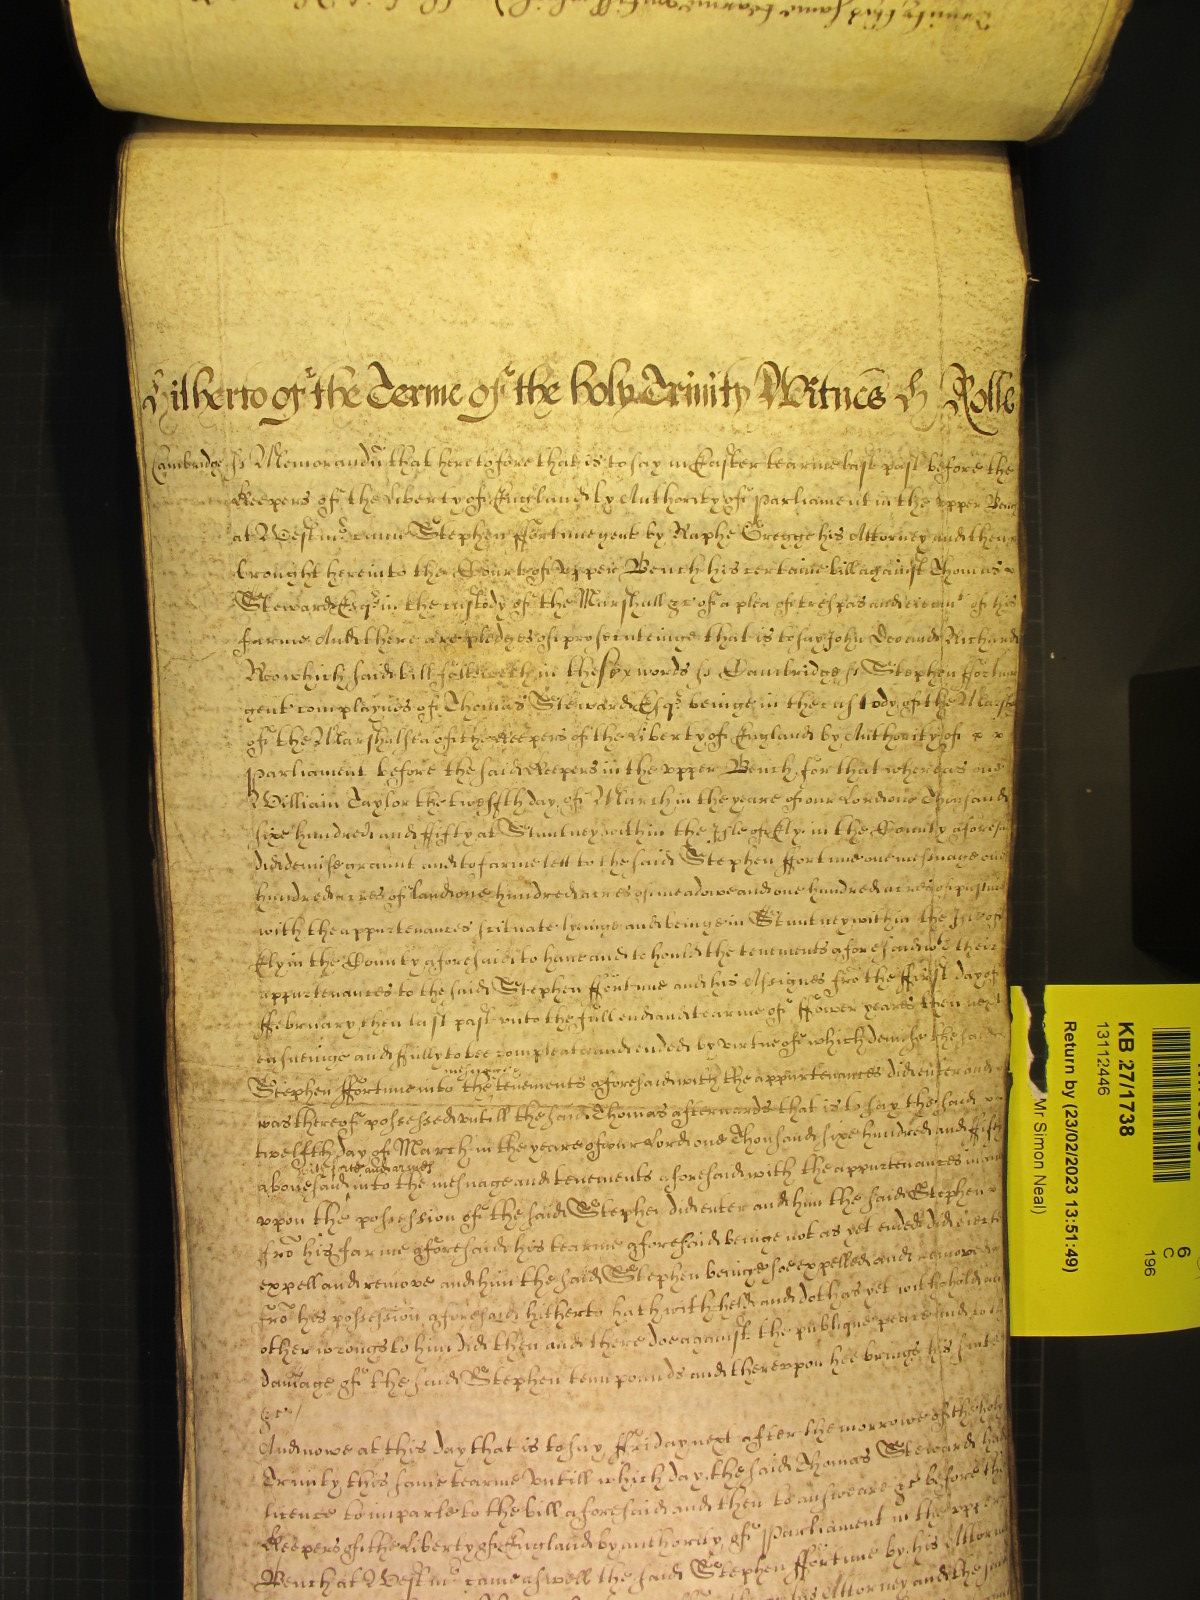 Hilberto of the Terme of the holy Trinity Witnes H Rolle
Cambridge ss Memorandu that heretofore that is to say in Easter tearme last past before the
Keepers of the Liberty of England by Authority of Parliament in the vpper Benc
at Westmr came Stephen ffortune gent by Raphe Gregge his Attorney and then
brought here into the Court of vpper Bench his certaine bill against Thomas
Steward Esqr in the custody of the Marshall &c of a plea of trespas and eiectmt of his
farme And there are pledges of prosecuteinge that is to say John Doe and Richard
Roo which said bill followeth in these words ss Cambridge ss Stephen ffortune
gent complaynes of Thomas Steward Esqr beinge in the custody of the Marsha
of the Marshalsea of the Keepers of the Liberty of England by Authority of
Parliament before the said Keepers in the vpper Bench for that whereas one
William Taylor the twelfth day of March in the yeare of our Lord one Thousand
sixe hundred and ffifty at Stuntney within the Isle of Ely in the County aforesaid
did demise graunt and to farme lett to the said Stephen ffortune one mesuage one
hundred acres of land one hundred acres of meadowe and one hundred acres of pasture
with the appurtenances scituate lyeinge and beinge in Stuntney within the Isle of
Ely in the County aforesaid to haue and to hould the tenements aforesaid wth their
appurtenances to the said Stephen ffortune and his Assignes fro the ffirst day of
ffebruary then last past vnto the full end and tearme of ffower yeares then next
ensueinge and fully to bee compleate and ended by virtue of which demise the said
Stephen ffortune into the tenements aforesaid with the appurtenances did enter and
was thereof possessed vntill the said Thomas afterwards that is to say the said
twelfth day of March in the yeare of our Lord one Thousand sixe hundred and ffifty
abouesaid with force and armes into the mesuage and tenements aforesaid with the appurtenances in and
vpon the possession of the said Stephen did enter and him the said Stephen
fro his farme aforesaid his tearme aforesaid beinge not as yet ended did eiecte
expell and remove and him the said Stephen beinge soe expelled and removed
fro his possession aforesaid hitherto hath withheld and doth as yet withhold and
other wrongs to him did then and there doe against the publique peace and to the
damage of the said Stephen tenn pounds and therevpon hee brings his suite
&c /
And nowe at this day that is to say ffriday next after the morrowe of the holy
Trinity this same tearme vntill which day the said Thomas Steward had
licence to imparle to the bill aforesaid and then to answeare &c before the
Keepers of the Liberty of England by authority of Parliament in the vpper
Bench at Westmr came aswell the said Stephen ffortune by his Attorney
his Attorney and the said
KB 27/1738
13112446
Return by (23/02/2023 13:51:49)
Mr. Simon Neal)
6
C
196